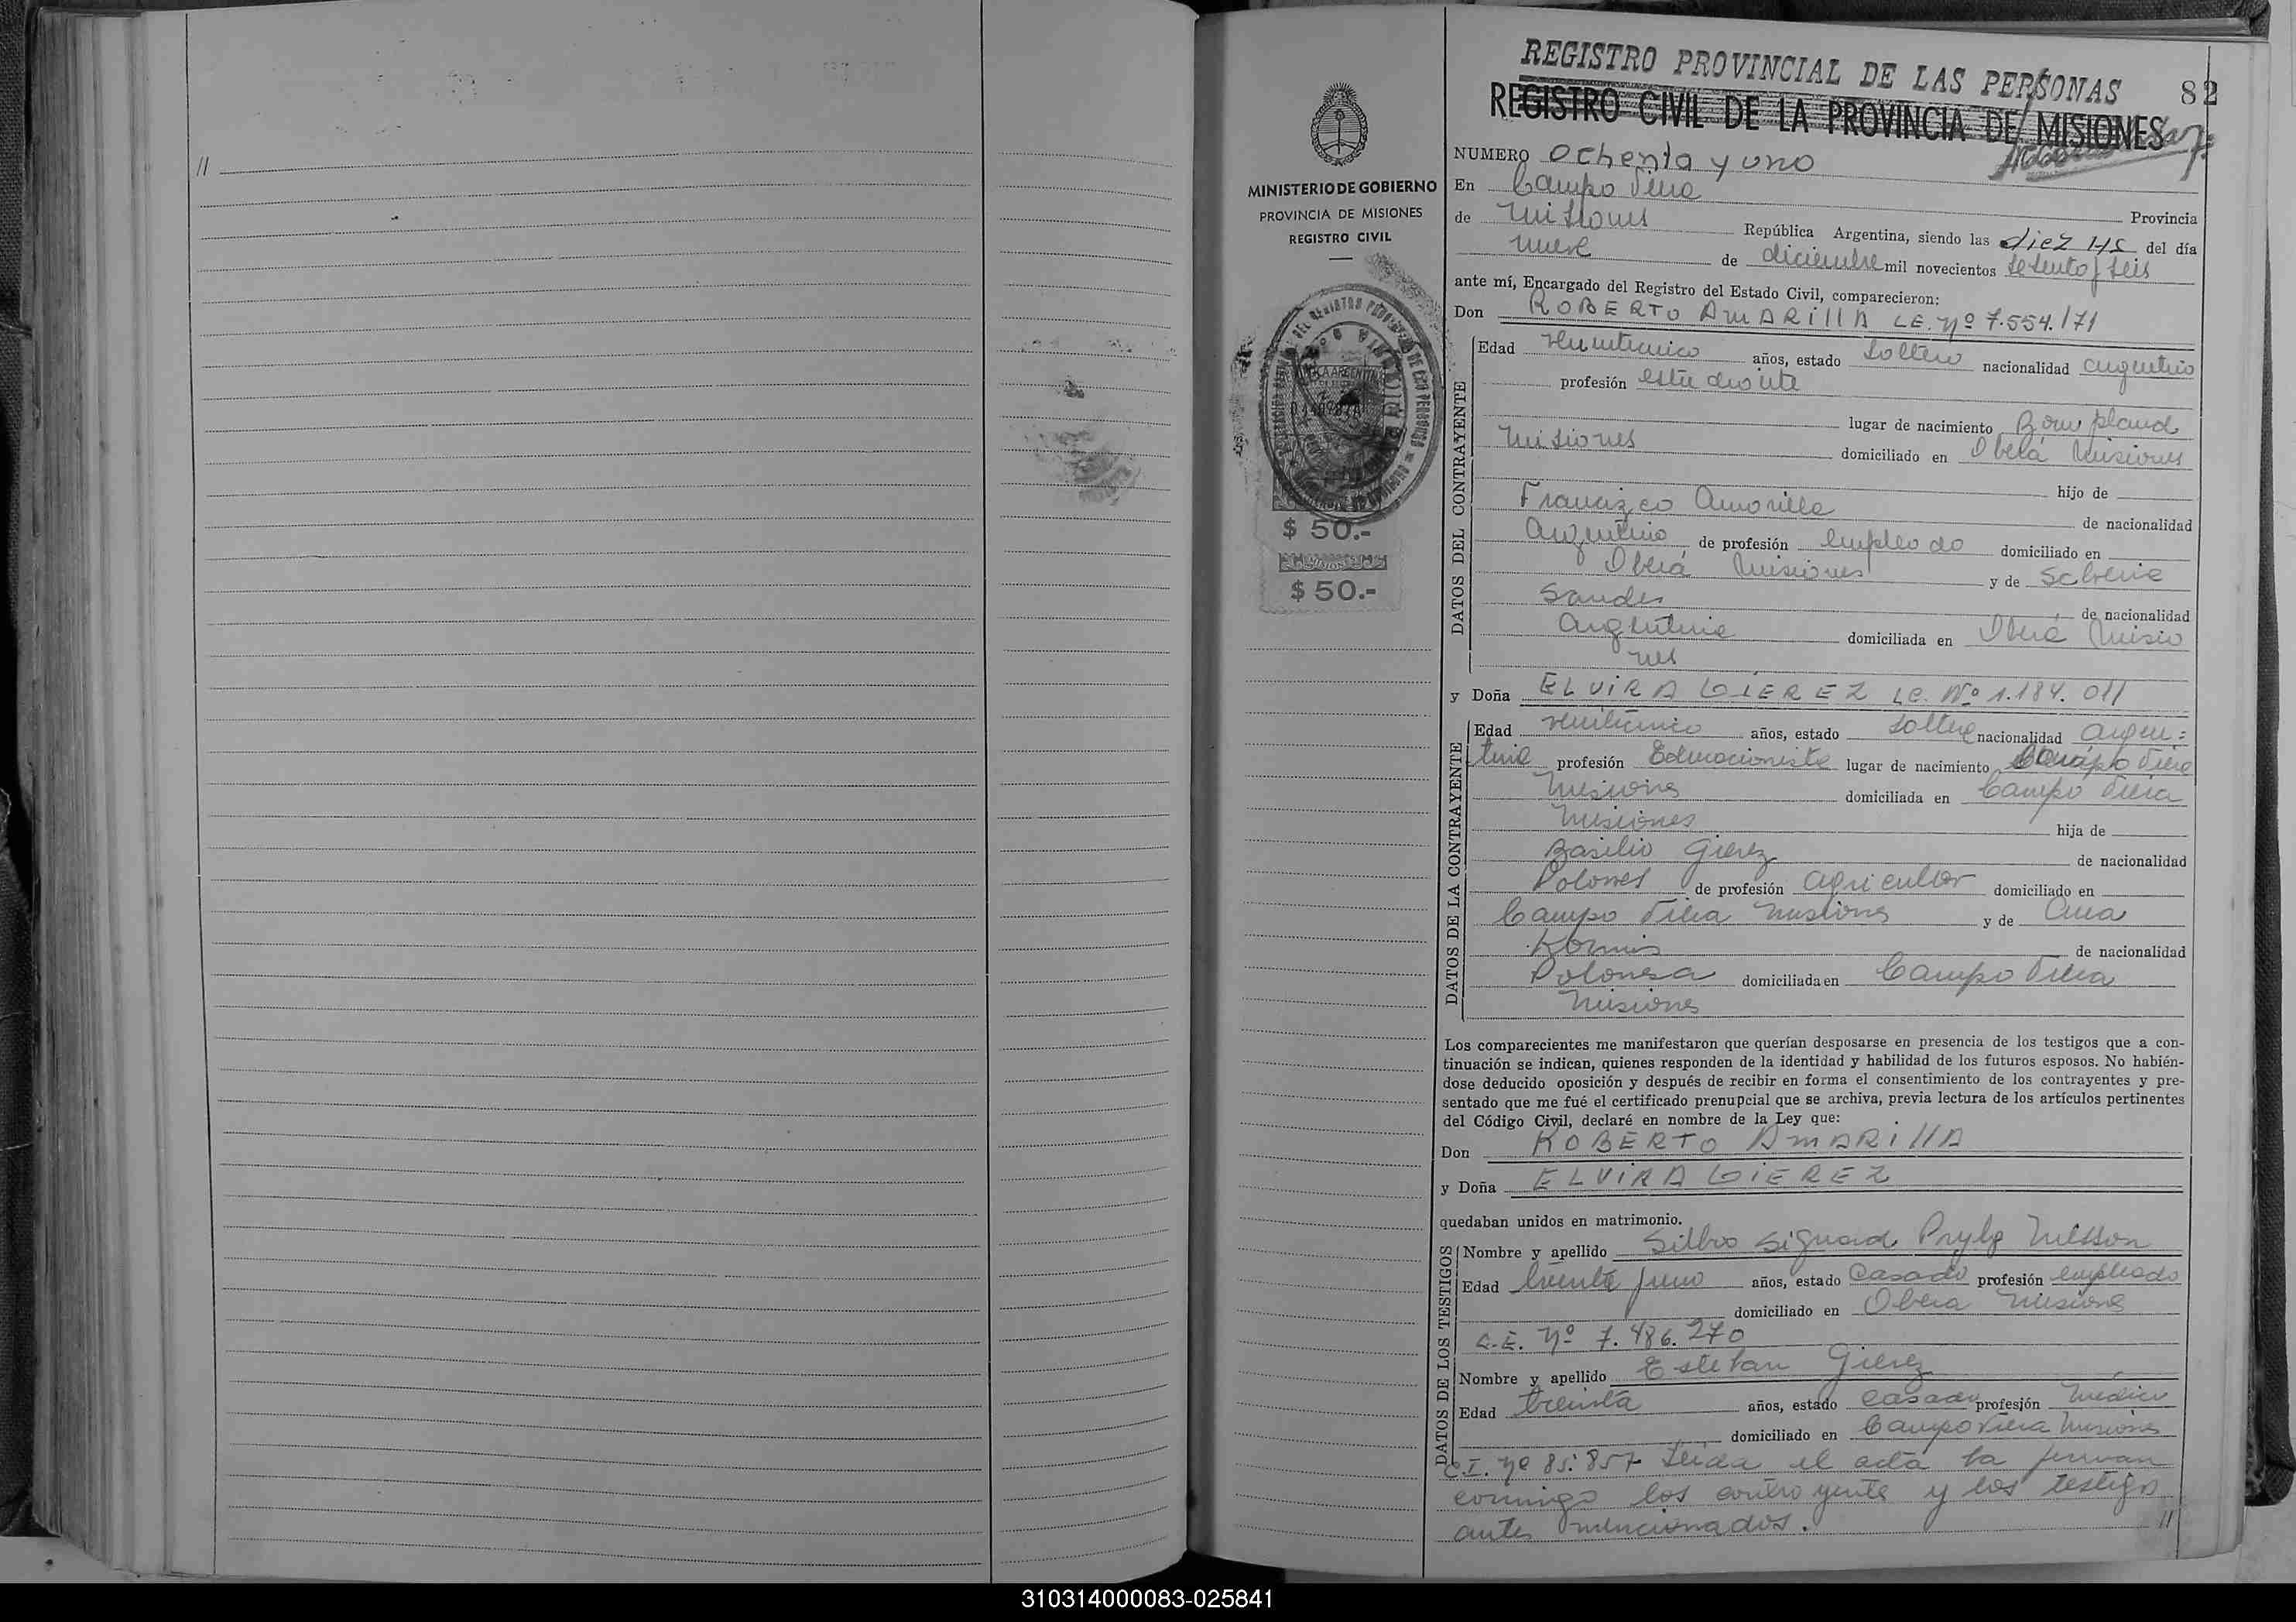 //
REGISTRO PROVINCIAL DE LAS PERSONAS
82
REGISTRO CIVIL DE LA PROVINCIA DE MISIONES
MINISTERIO DE GOBIERNO
PROVINCIA DE MISIONES
REGISTRO CIVIL
$ 50.-
$ 50.-
NUMERO Ochenta y uno
En Campo Viera
Provincia
de Misiones República Argentina, siendo las diez Hs del día
nueve de diciembre mil novecientos setenta y seis
ante mí, Encargado del Registro del Estado Civil, comparecieron:
Don ROBERTO AMARILLA LE. Nº 7.554.171
DATOS DEL CONTRAYENTE
Edad años, estado soltero nacionalidad argentino
profesión estudiante
lugar de nacimiento Bompland
Misiones domiciliado en Oberá Misiones
hijo de
Francizco Amarilla
de nacionalidad
argentino de profesión empleado domiciliado en
Oberá Misiones y de
de nacionalidad
argentina domiciliada en Oberá Misio
nes
y Doña ELVIRA GIEREZ LC. Nº 1.184.011
DATOS DE LA CONTRAYENTE
Edad años, estado soltera nacionalidad argen=
tina profesión Educacionista lugar de nacimiento Campo Viera
Misiones domiciliada en Campo Viera
Misiones
hija de
Basilio Gierez
de nacionalidad
Polones de profesión agricultor domiciliado en
Campo Viera Misiones y de Ana
de nacionalidad
Polonesa domiciliada en Campo Viera
Misiones
Los comparecientes me manifestaron que querían desposarse en presencia de los testigos que a con-
tinuación se indican, quienes responden de la identidad y habilidad de los futuros esposos. No habién-
dose deducido oposición y después de recibir en forma el consentimiento de los contrayentes y pre-
sentado que me fué el certificado prenupcial que se archiva, previa lectura de los artículos pertinentes
del Código Civil, declaré en nombre de la Ley que:
Don ROBERTO AMARILLA
y Doña ELVIRA GIEREZ
quedaban unidos en matrimonio.
DATOS DE LOS TESTIGOS
Nombre y apellido Silbio Nilsson
Edad treinta y uno años, estado Casado profesión empleado
domiciliado en Oberá Misiones
L.E. Nº 7.486.270
Nombre y apellido Esteban Gierez
Edad treinta años, estado casado profesión Médico
domiciliado en Campo Viera Misiones
C.I. Nº 85.857 Leida el acta la firman
conmigo los contrayente y los testigo
antes mencionados. //
310314000083-025841